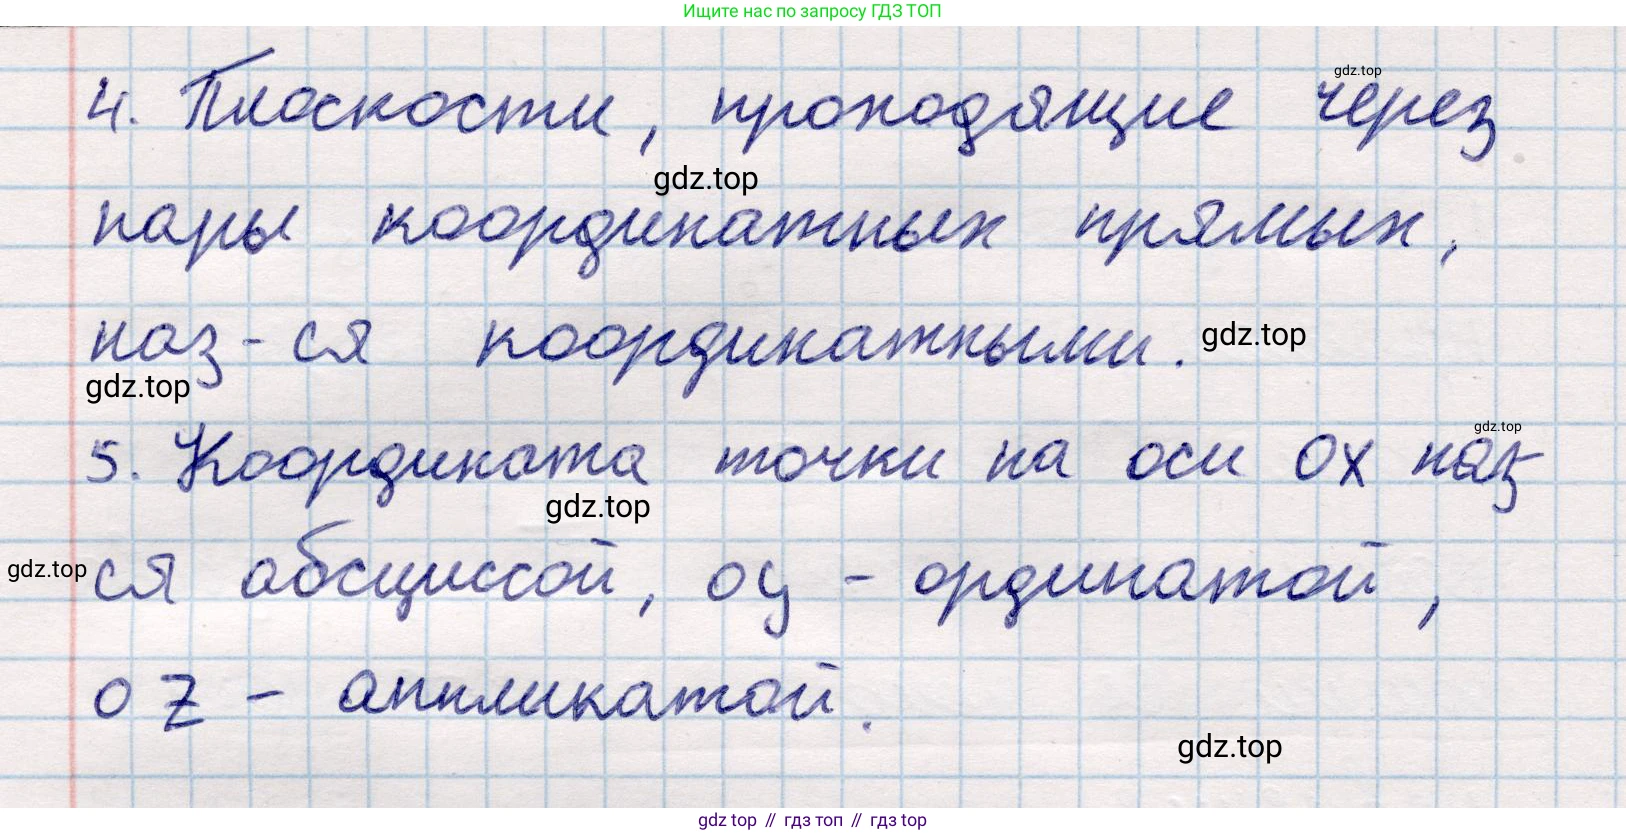 Ищите нас по запросу ГДЗ ТОП
gdz.top
4. Плоскости, проходящие через
gdz.top
пары координатных прямых,
наз-ся координатными.
gdz.top
gdz.top
gdz.top
5. Координата точки на оси Ox наз-
gdz.top
gdz.top
ся абсциссой, oy - ординатой,
oz - аппликатой.
gdz.top
gdz top // гдз топ // гдз top